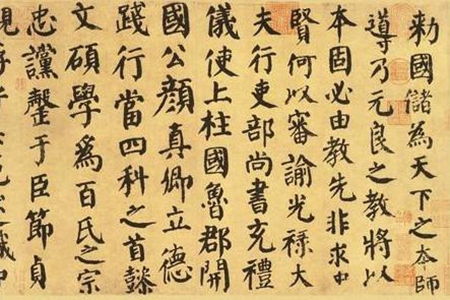 勑國儲為天下之本師
導乃元良之教將以
本固必由教先非求中
賢何以審諭光祿大
夫行吏部尚書充禮
儀使上柱國魯郡開
國公顏真卿立德
踐行當四科之首懿
文碩學爲百氏之宗
忠讜罄于臣節貞